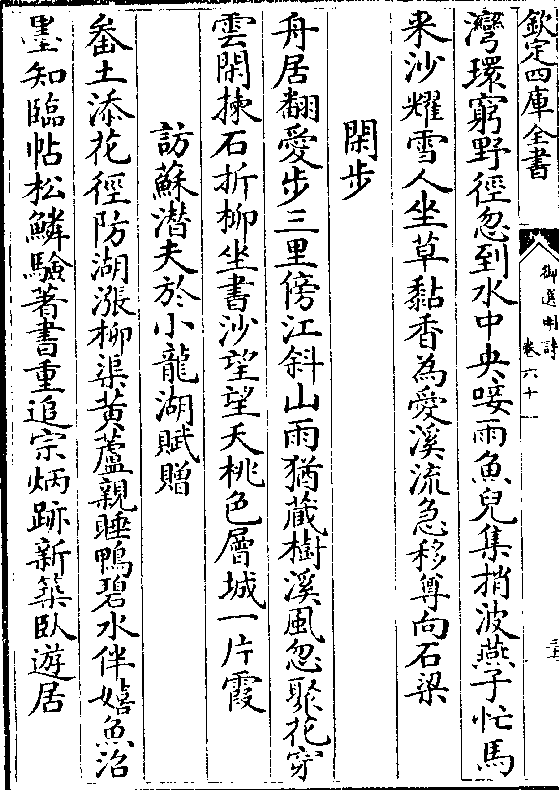 欽定四庫全書
御選明詩
卷六十一
灣環窮野徑忽到水中央唼雨魚兒集捎波燕子忙馬
來沙耀雪人坐草黏香為愛溪流急移尊向石梁
閑步
舟居翻愛步三里傍江斜山雨猶藏樹溪風忽聚花穿
雲閑揀石折柳坐書沙望望夭桃色層城一片霞
訪蘇潛夫於小龍湖賦贈
畚土添花徑防湖漲柳渠黃蘆親睡鴨碧水伴嬉魚沿
墨知臨帖松鱗驗著書重追宗炳跡新築臥遊居